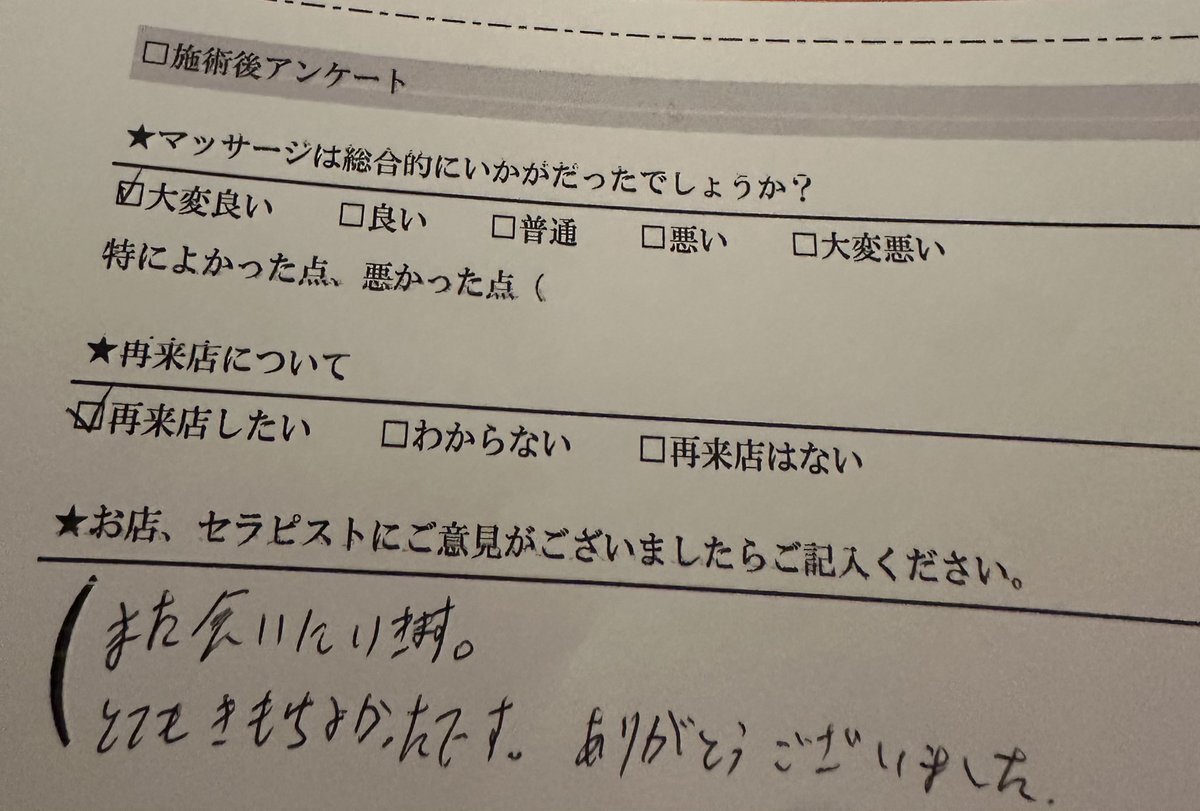 □施術後アンケート
★マッサージは総合的にいかがだったでしょうか?
☑大変良い □良い □普通 □悪い □大変悪い
特によかった点、悪かった点(
★再来店について
☑再来店したい □わからない □再来店はない
★お店、セラピストにご意見がございましたらご記入ください。
(また会いにいきます。
とてもきもちよかったです。 ありがとうございました.